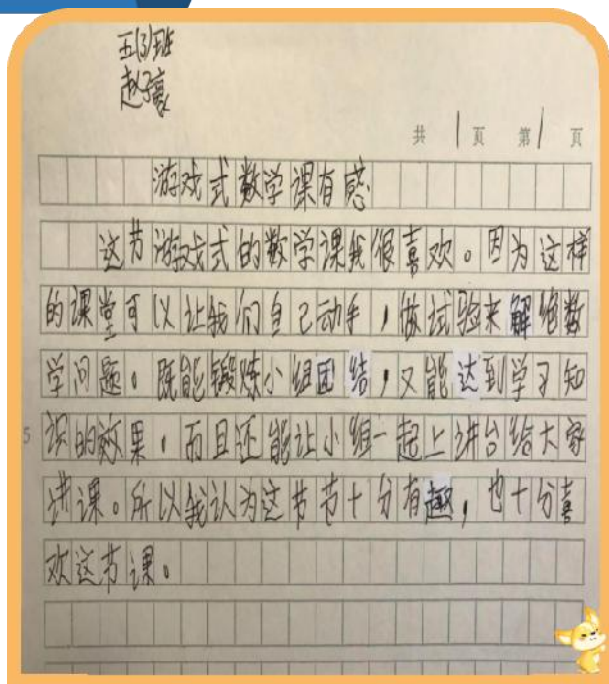 五(3)班
赵子豪
共1页 第1页
游戏式数学课有感
这节游戏式的数学课我很喜欢。因为这样
的课堂可以让我们自己动手，做试验来解绝数
学问题。既能锻炼小组团结，又能达到学习知
识的效果，而且还能让小组一起上讲台给大家
讲课。所以我认为这节节十分有趣，也十分喜
欢这节课。
5